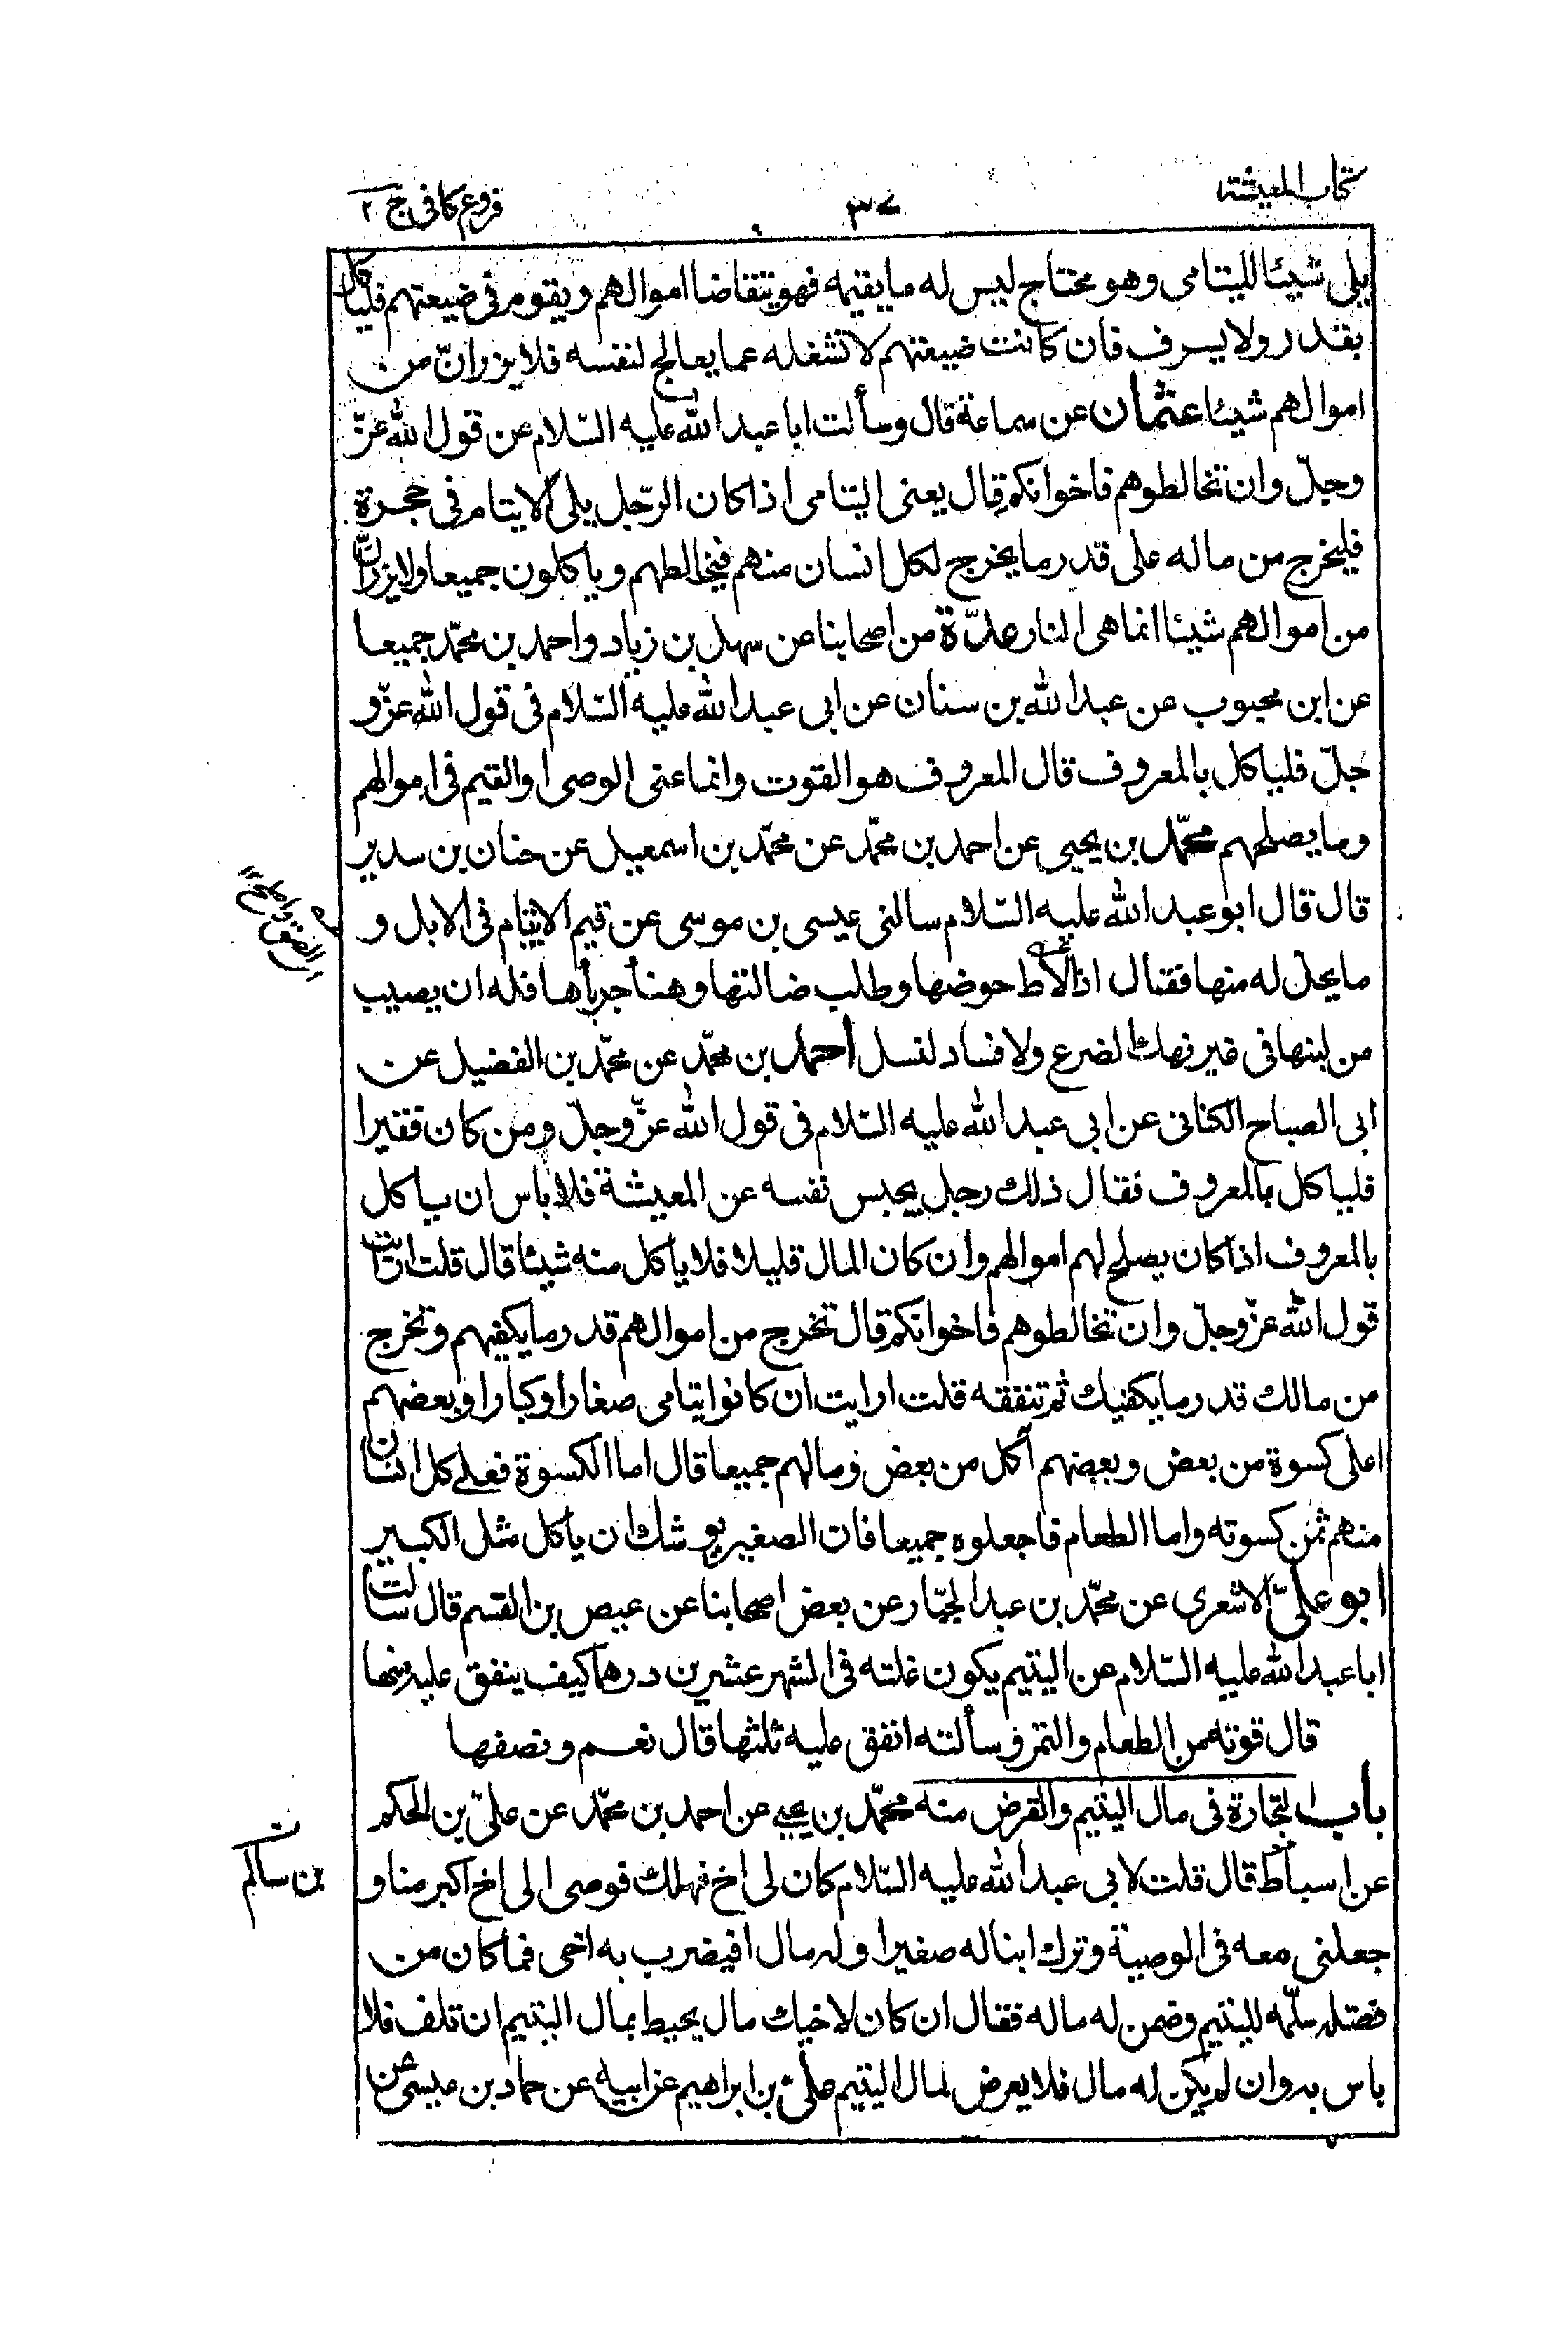 كتاب المعيشة ٣٧ فروع كافى ج ٢
يلى شيئا لليتامى وهو محتاج ليس له ما يقيمه فهو يتقاضا اموالهم ويقوم فى ضيعتهم فلياكل
بقدر ولا يسرف فان كانت ضيعتهم لا تشغله عما يعالج لنفسه فلا يزرأنّ من
اموالهم شيئا عثمان عن سماعة قال وسألت ابا عبد الله عليه السّلام عن قول الله عزّ
وجلّ وان تخالطوهم فاخوانكم قال يعنى اليتامى اذا كان الرّجل يلى الايتام فى حجرة
فليخرج من ماله على قدر ما يخرج لكل انسان منهم فيخالطهم وياكلون جميعا ولا يزرأنّ
من اموالهم شيئا انما هى النار عدّة من اصحابنا عن سهل بن زياد واحمد بن محمّد جميعا
عن ابن محبوب عن عبد الله بن سنان عن ابى عبد الله عليه السّلام فى قول الله عزّ و
جلّ فلياكل بالمعروف قال المعروف هو القوت وانما عنى الوصى او القيم فى اموالهم
وما يصلحهم محمّد بن يحيى عن احمد بن محمّد عن محمّد بن اسمعيل عن حنان بن سدير
قال قال ابو عبد الله عليه السّلام سالنى عيسى بن موسى عن قيم الايتام فى الابل و
ما يحلّ له منها فقال اذا لاط حوضها وطلب ضالتها وهنأ جرباها فله ان يصيب
من لبنها فى غير نهك لضرع ولا فساد لنسل أحمد بن محمّد عن محمّد بن الفضيل عن
ابى الصباح الكنانى عن ابى عبد الله عليه السّلام فى قول الله عزّ وجلّ ومن كان فقيرا
فلياكل بالمعروف فقال ذلك رجل يحبس نفسه عن المعيشة فلا باس ان ياكل
بالمعروف اذا كان يصلح لهم اموالهم وان كان المال قليلا فلا يأكل منه شيئا قال قلت ارأيت
قول الله عزّ وجلّ وان تخالطوهم فاخوانكم قال تخرج من اموالهم قدر ما يكفيهم وتخرج
من مالك قدر ما يكفيك ثم تنفقه قلت ارايت ان كانوا يتامى صغارا وكبارا وبعضهم
اعلى كسوة من بعض وبعضهم آكل من بعض ومالهم جميعا قال اما الكسوة فعلى كل انسان
منهم ثمن كسوته واما الطعام فاجعلوه جميعا فان الصغير يوشك ان يأكل مثل الكبير
ابو علىّ الاشعرى عن محمّد بن عبد الجبّار عن بعض اصحابنا عن عيص بن القسم قال سالت
ابا عبد الله عليه السّلام عن اليتيم يكون غلته فى الشهر عشرين درهما كيف ينفق عليه منها
قال قوته من الطعام والتمر وسألته انفق عليه ثلثها قال نعم ونصفها
باب التجارة فى مال اليتيم والقرض منه محمّد بن يحيى عن احمد بن محمّد عن علىّ بن الحكم
عن اسباط قال قلت لابى عبد الله عليه السّلام كان لى اخ فهلك فوصى الى اخ اكبر منا و
بن سالم
جعلنى معه فى الوصية وترك ابنا له صغيرا وله مال افيضرب به اخى فما كان من
فضله سلّمه لليتيم وضمن له ماله فقال ان كان لاخيك مال يحيط بمال اليتيم ان تلف فلا
باس به وان لم يكن له مال فلا يعرض لمال اليتيم علىّ بن ابراهيم عن ابيه عن حماد بن عيسى عن